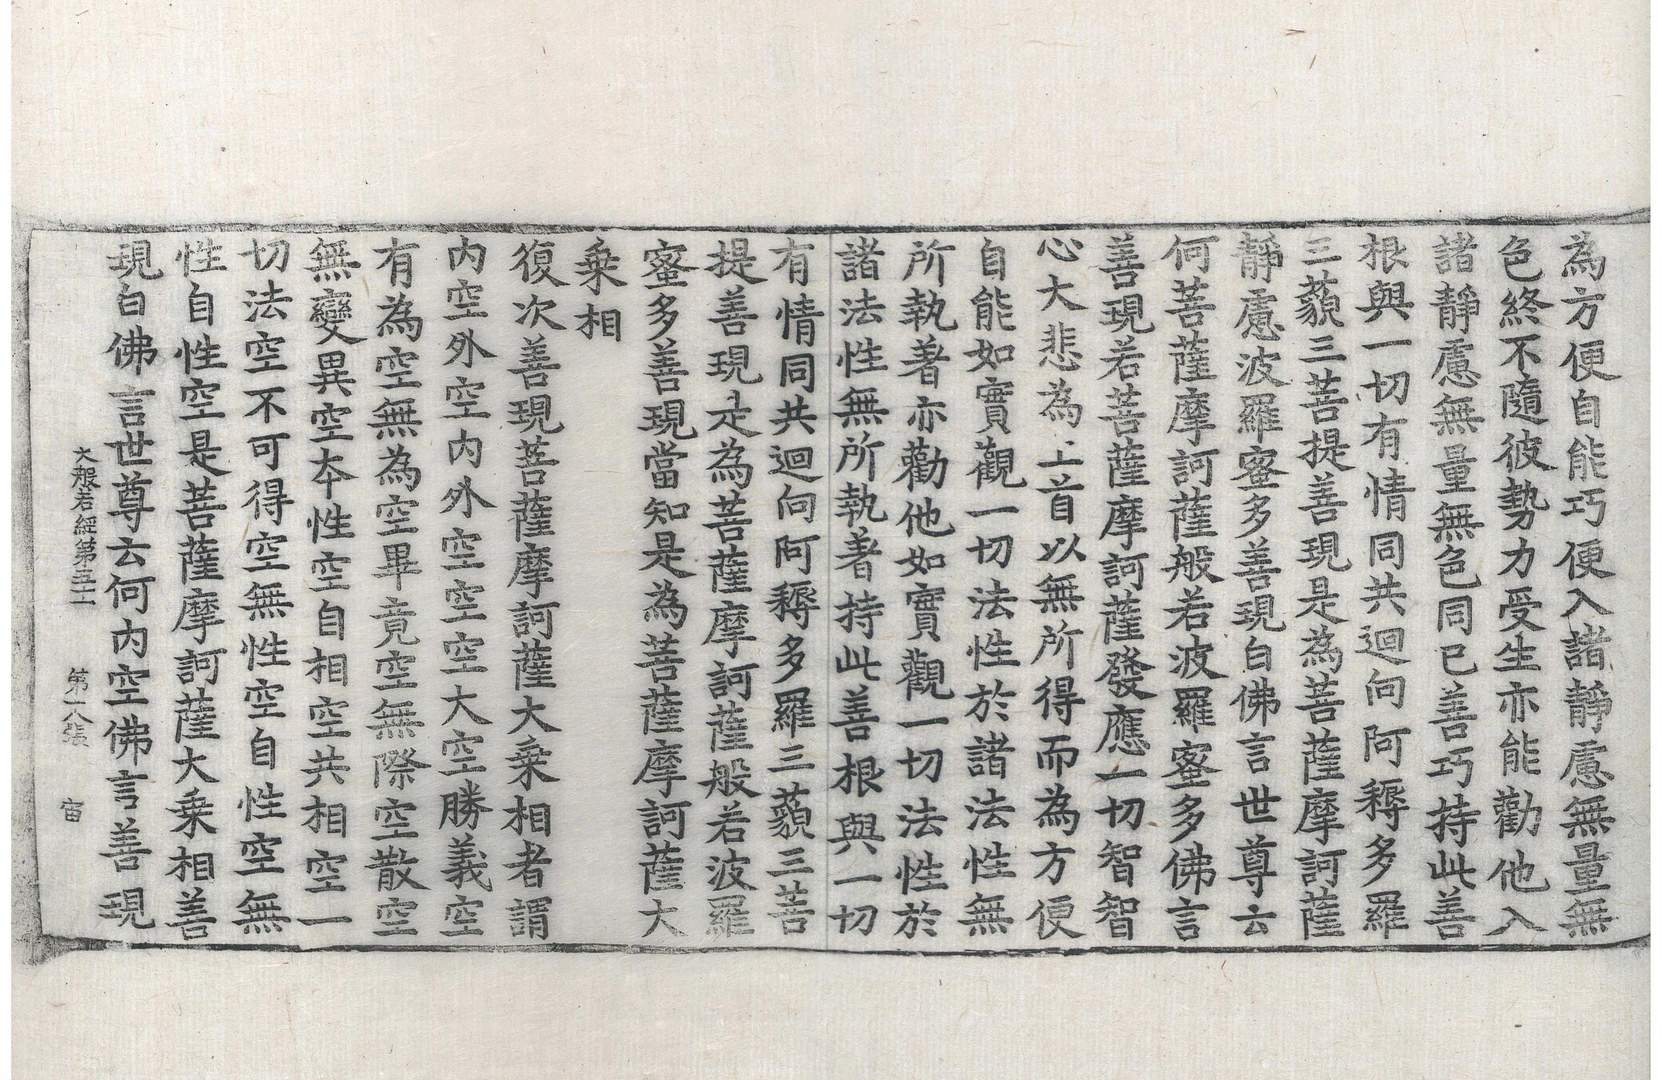 為方便自能巧便入諸靜慮無量無
色終不隨彼勢力受生亦能勸他入
諸靜慮無量無色同已善巧持此善
根與一切有情同共迴向阿耨多羅
三藐三菩提善現是為菩薩摩訶薩
靜慮波羅蜜多善現白佛言世尊云
何菩薩摩訶薩般若波羅蜜多佛言
善現若菩薩摩訶薩發應一切智智
心大悲為上首以無所得而為方便
自能如實觀一切法性於諸法性無
所執著亦勸他如實觀一切法性於
諸法性無所執著持此善根與一切
有情同共迴向阿耨多羅三藐三菩
提善現是為菩薩摩訶薩般若波羅
蜜多善現當知是為菩薩摩訶薩大
乗相
復次善現菩薩摩訶薩大乗相者謂
内空外空内外空空空大空勝義空
有為空無為空畢竟空無際空散空
無變異空本性空自相空共相空一
切法空不可得空無性空自性空無
性自性空是菩薩摩訶薩大乗相善
現白佛言世尊云何内空佛言善現
大般若經第五十一 第十八張 宙